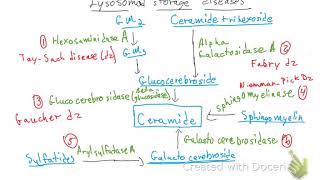 Lysosomal storage diseases
GM2 Ceramide trihexoside
① Hexosaminidase A
Tay-Sach disease (dz)
GM3
Alpha Galactosidase A ②
Fabry dz
Glucocerebroside
Niemman-Pick Dz
③ Glucocerebrosidase (Beta-glucosidase)
Gaucher dz
Sphingomyelinase ④
Ceramide
Sphingomyelin
⑤ Galactocerebrosidase ⑥
Sulfatides Arylsulfatase A Galactocerebroside
Created with Doceri